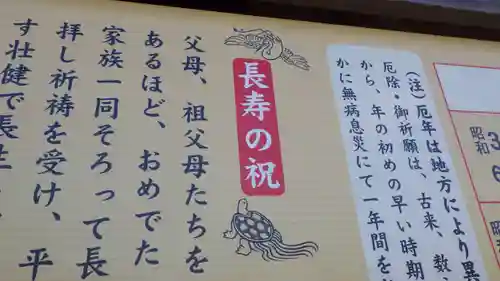 (注)厄年は地方により異
厄除・御祈願は、古来、数
から、年の初めの早い時期
かに無病息災にて一年間を
昭和
長寿の祝
父母、祖父母たちを
あるほど、おめでた
家族一同そろって長
拝し祈祷を受け、平
す壮健で長生